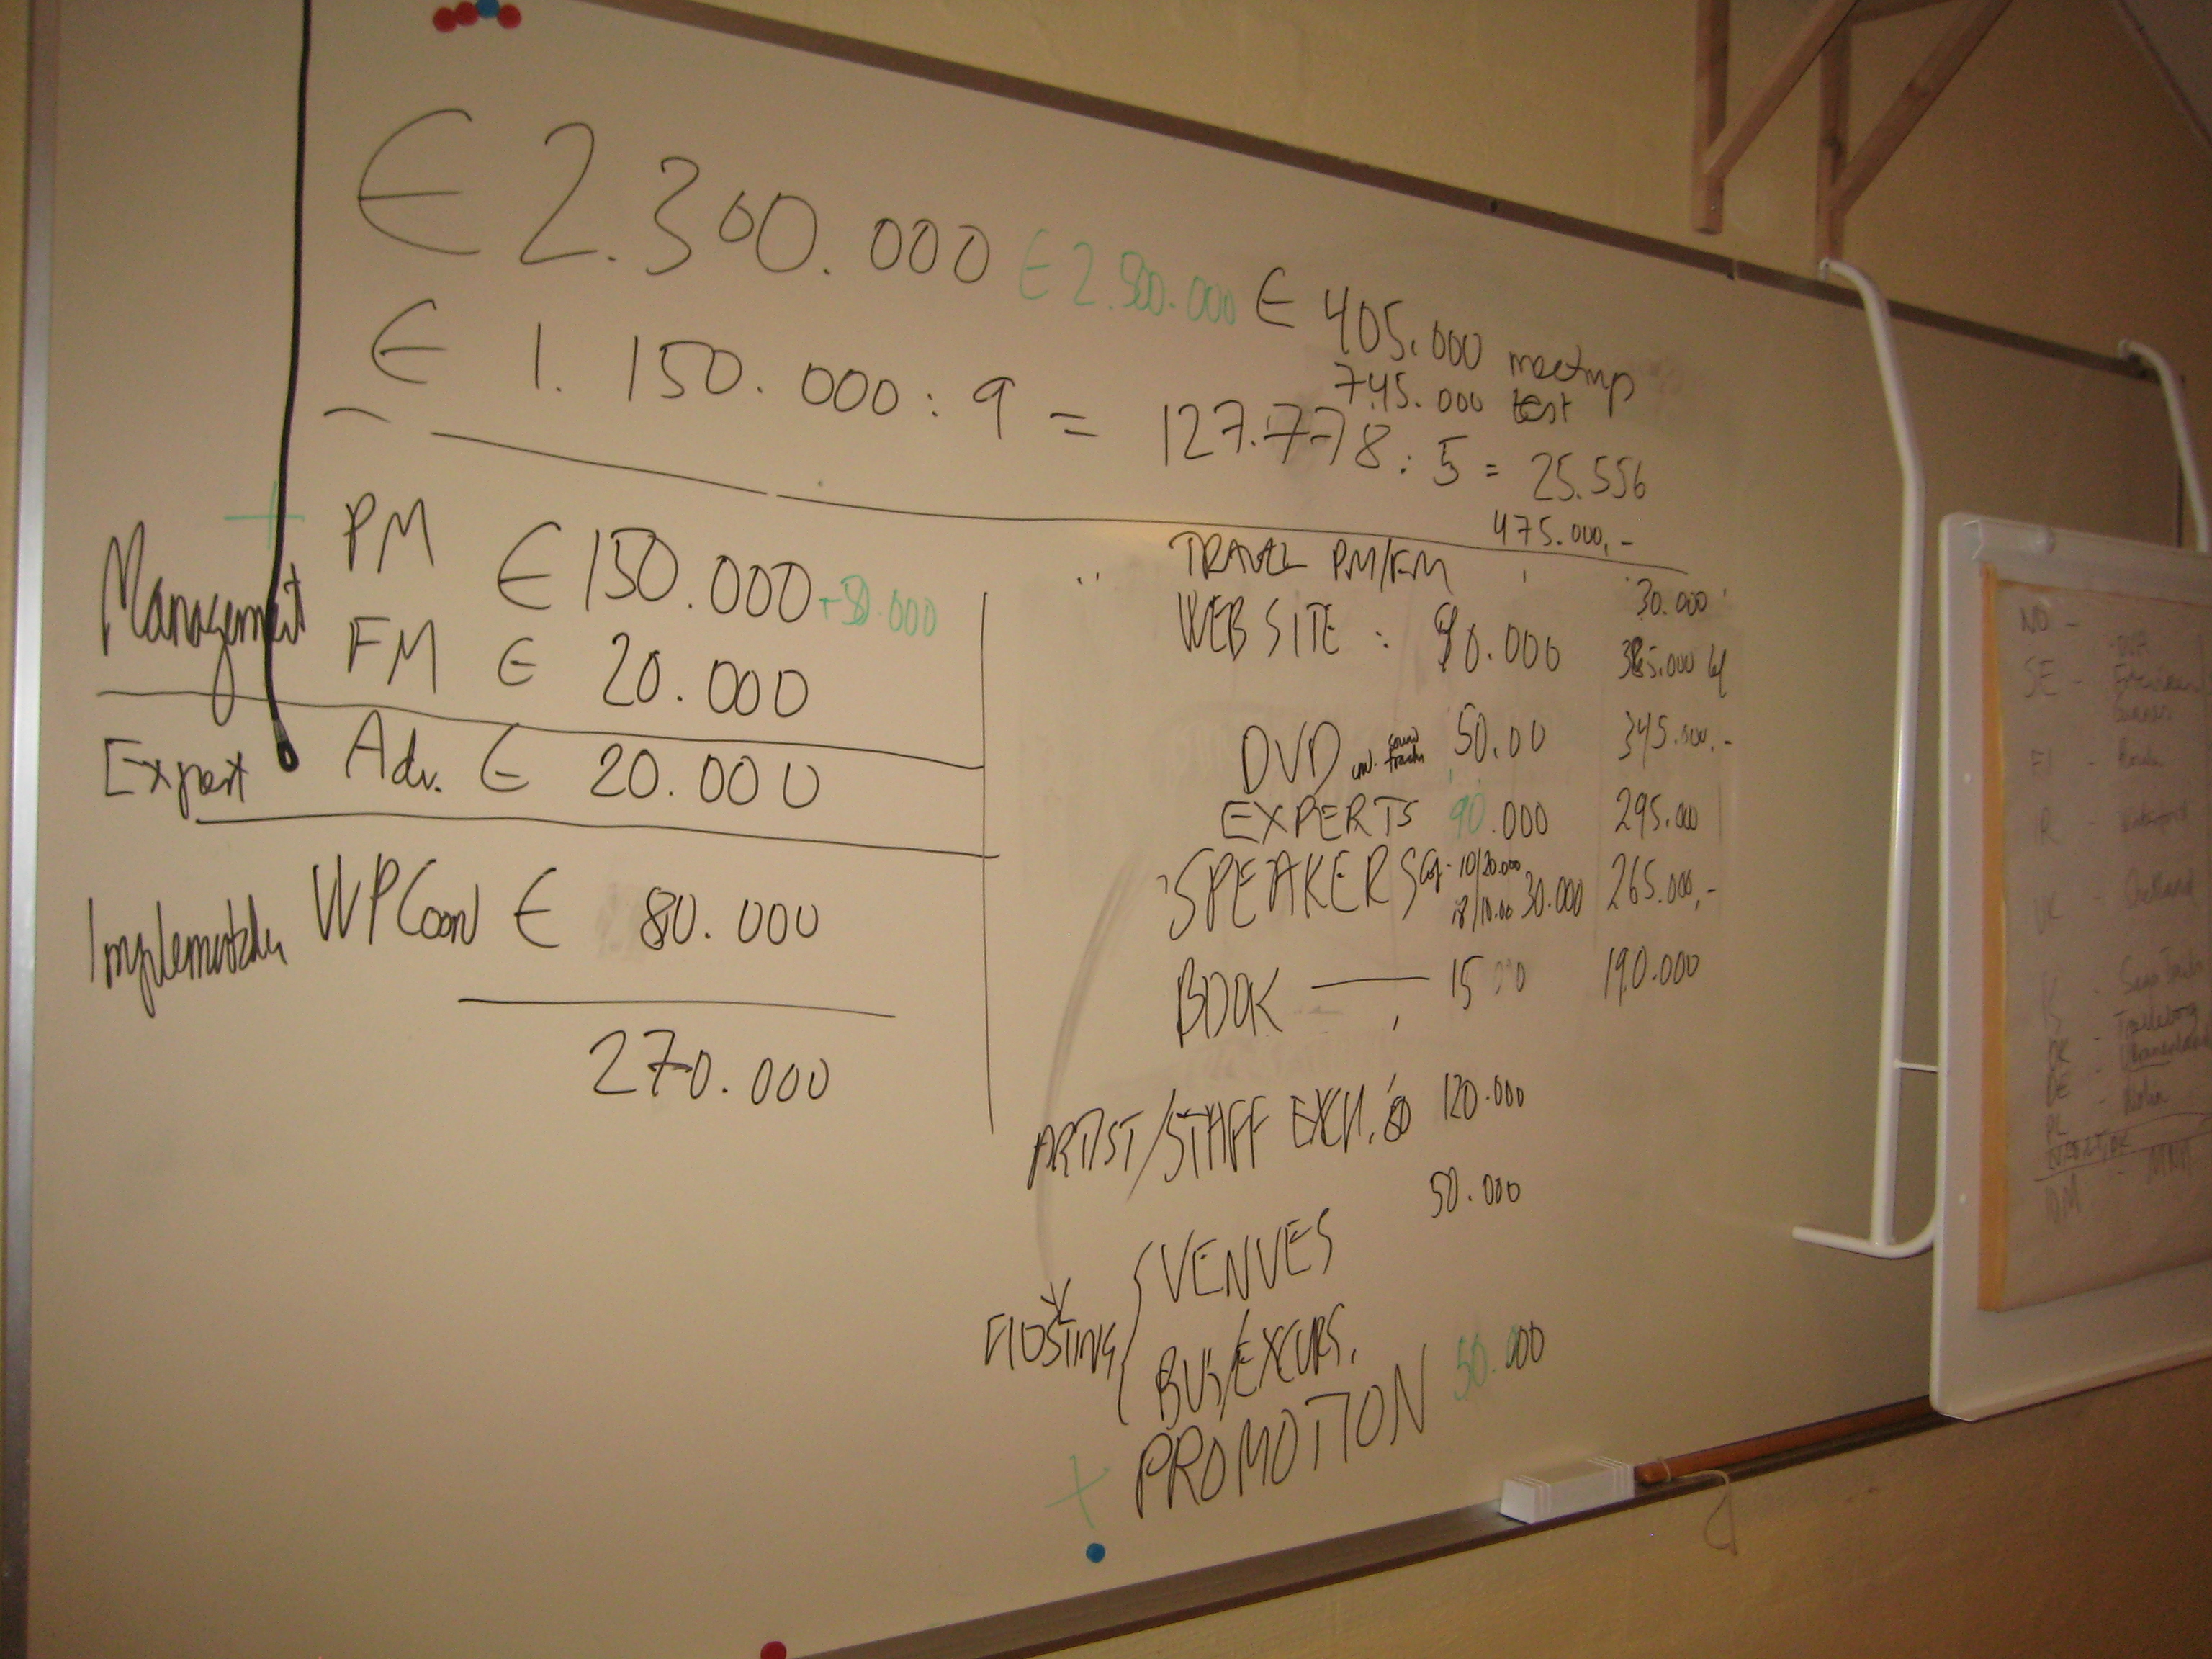 € 2.300.000 € 2.500.000 € 405.000 meetup
745.000 test
€ 1.150.000 : 9 = 127.778 : 5 = 25.556
475.000,-
Management PM € 150.000 +30.000
FM € 20.000
Expert Adv. € 20.000
Implementation WPCoord € 80.000
270.000
TRAVEL PM/FM 30.000
WEB SITE : 90.000 385.000
DVD sound track 50.00 345.000,-
EXPERTS 90.000 295.000
SPEAKERS 10/20.000 30.000 265.000,-
BOOK — 15 190.000
ARTIST/STAFF EXCH. 120.000
50.000
HOSTING { VENUES
BUS/EXCURS.
+ PROMOTION 50.000
NO -
SE -
FI -
IR -
UK - Shetland
DK
DE
PL